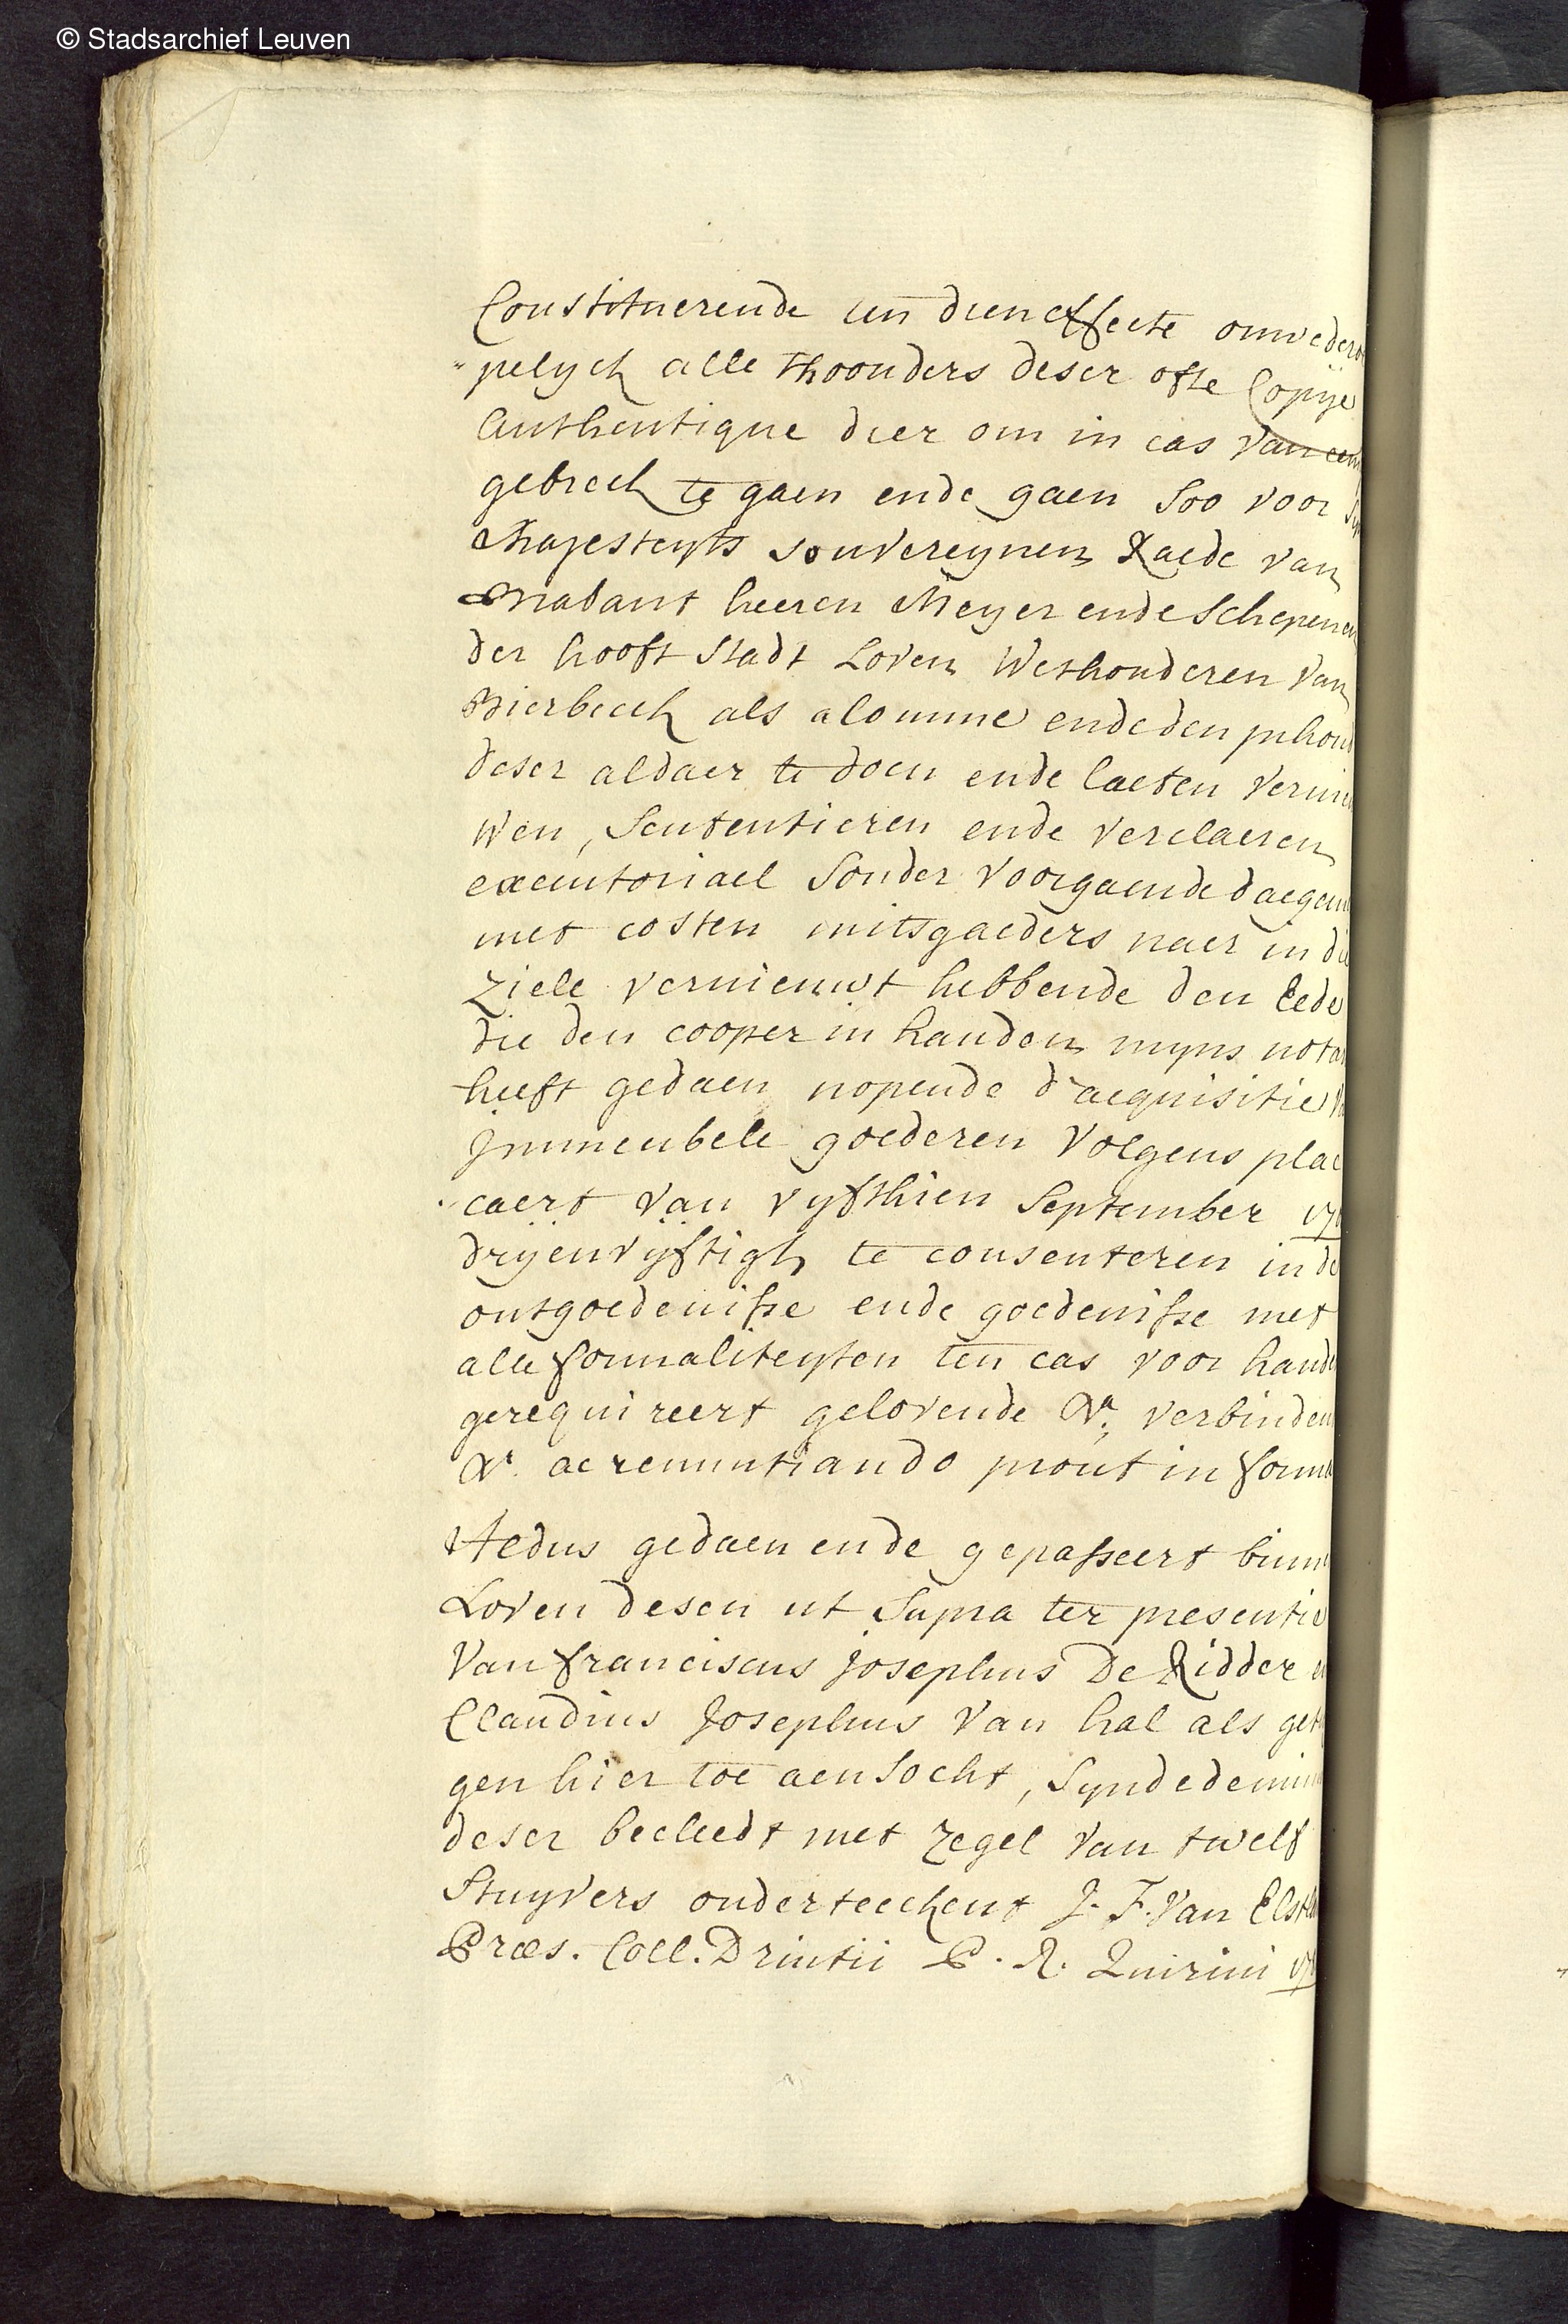 © Stadsarchief Leuven
Constituerende ten dien effecte onwedero
"pelyck alle Thoonders deser ofte Copye
Authentique dier om in cas van een
gebreck te gaen ende gaen soo voor Syn
Majesteyts souvereynen Raede van
Brabant heeren Meyer ende Schepenen
der hooft Stadt Loven Wethouderen van
Bierbeeck als alomme ende den Inhoud
deser aldaer te doen ende laeten vernie
wen, Sententieren ende verclaeren
executoriael Sonder voorgaende daegem
met costen mitsgaeders naer in die
Ziele vernieuwt hebbende den Eede
die den cooper in handen myns nota
heeft gedaen nopende d'acquisitie va
Immeubele goederen volgens plac
"caert van vyfthien September 17C
drijenvijftigh te consenteren in de
ontgoedenisse ende goedenisse met
alle formaliteyten ten cas voor hande
gerequireert gelovende &a; verbinden
&a. ac renuntiando prout in forma
Aldus gedaen ende gepasseert binne
Loven desen ut Supra ter presentie
Van franciscus josephus De Ridder en
Claudius Josephus Van hal als getu
gen hier toe aensocht, Synde de minu
deser becleedt met zegel van twelf
Stuyvers onderteeckent J. F. Van Elst
Præs. Coll. Driutii P. R. Quirini 17C